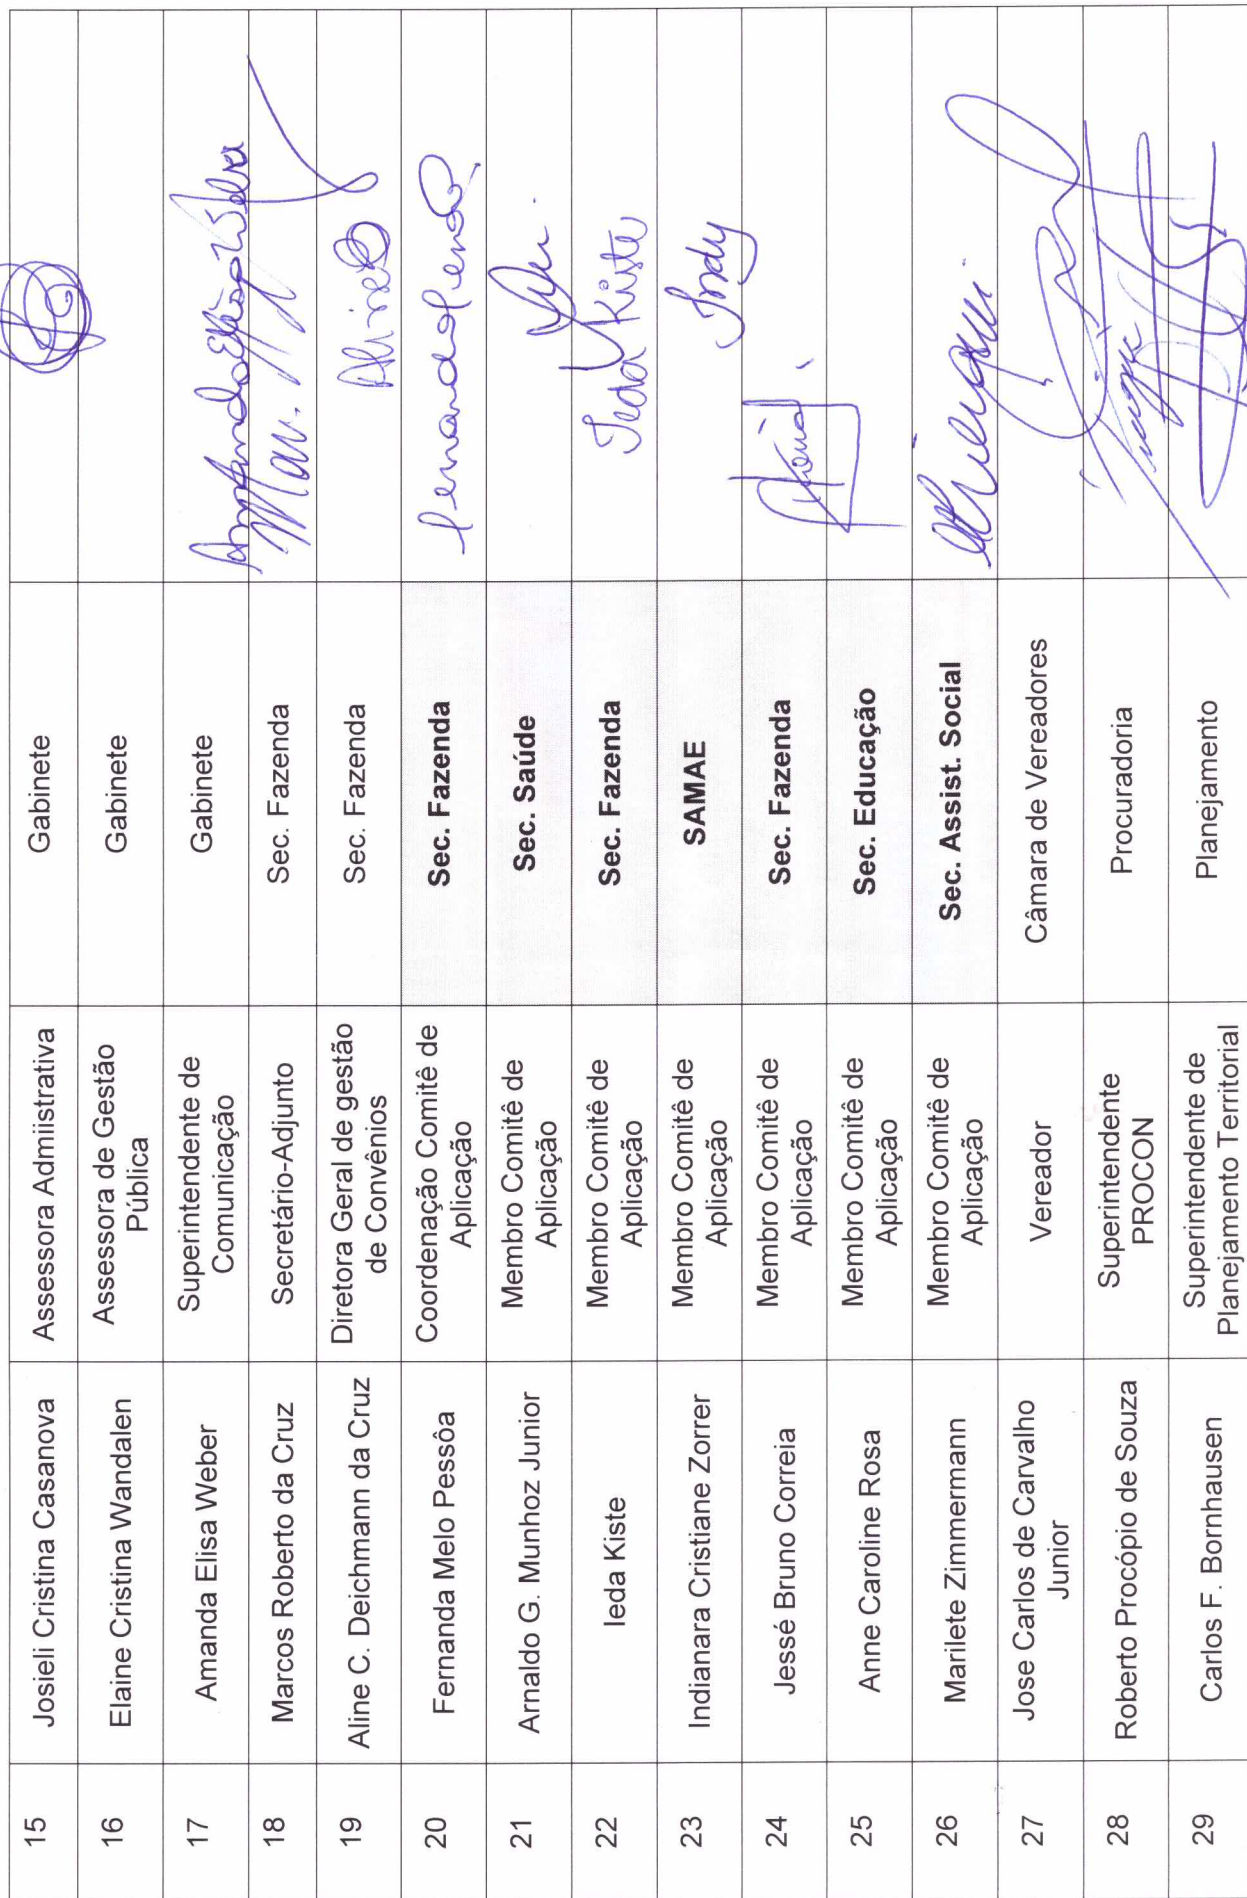 15 Josieli Cristina Casanova Assessora Admiistrativa Gabinete
16 Elaine Cristina Wandalen Assessora de Gestão
Pública Gabinete
17 Amanda Elisa Weber Superintendente de
Comunicação Gabinete
18 Marcos Roberto da Cruz Secretário-Adjunto Sec. Fazenda
19 Aline C. Deichmann da Cruz Diretora Geral de gestão
de Convênios Sec. Fazenda Aline
20 Fernanda Melo Pessôa Coordenação Comitê de
Aplicação Sec. Fazenda
21 Arnaldo G. Munhoz Junior Membro Comitê de
Aplicação Sec. Saúde
22 Ieda Kiste Membro Comitê de
Aplicação Sec. Fazenda Ieda Kiste
23 Indianara Cristiane Zorrer Membro Comitê de
Aplicação SAMAE Indy
24 Jessé Bruno Correia Membro Comitê de
Aplicação Sec. Fazenda
25 Anne Caroline Rosa Membro Comitê de
Aplicação Sec. Educação
26 Marilete Zimmermann Membro Comitê de
Aplicação Sec. Assist. Social
27 Jose Carlos de Carvalho
Junior Vereador Câmara de Vereadores
28 Roberto Procópio de Souza Superintendente
PROCON Procuradoria
29 Carlos F. Bornhausen Superintendente de
Planejamento Territorial Planejamento